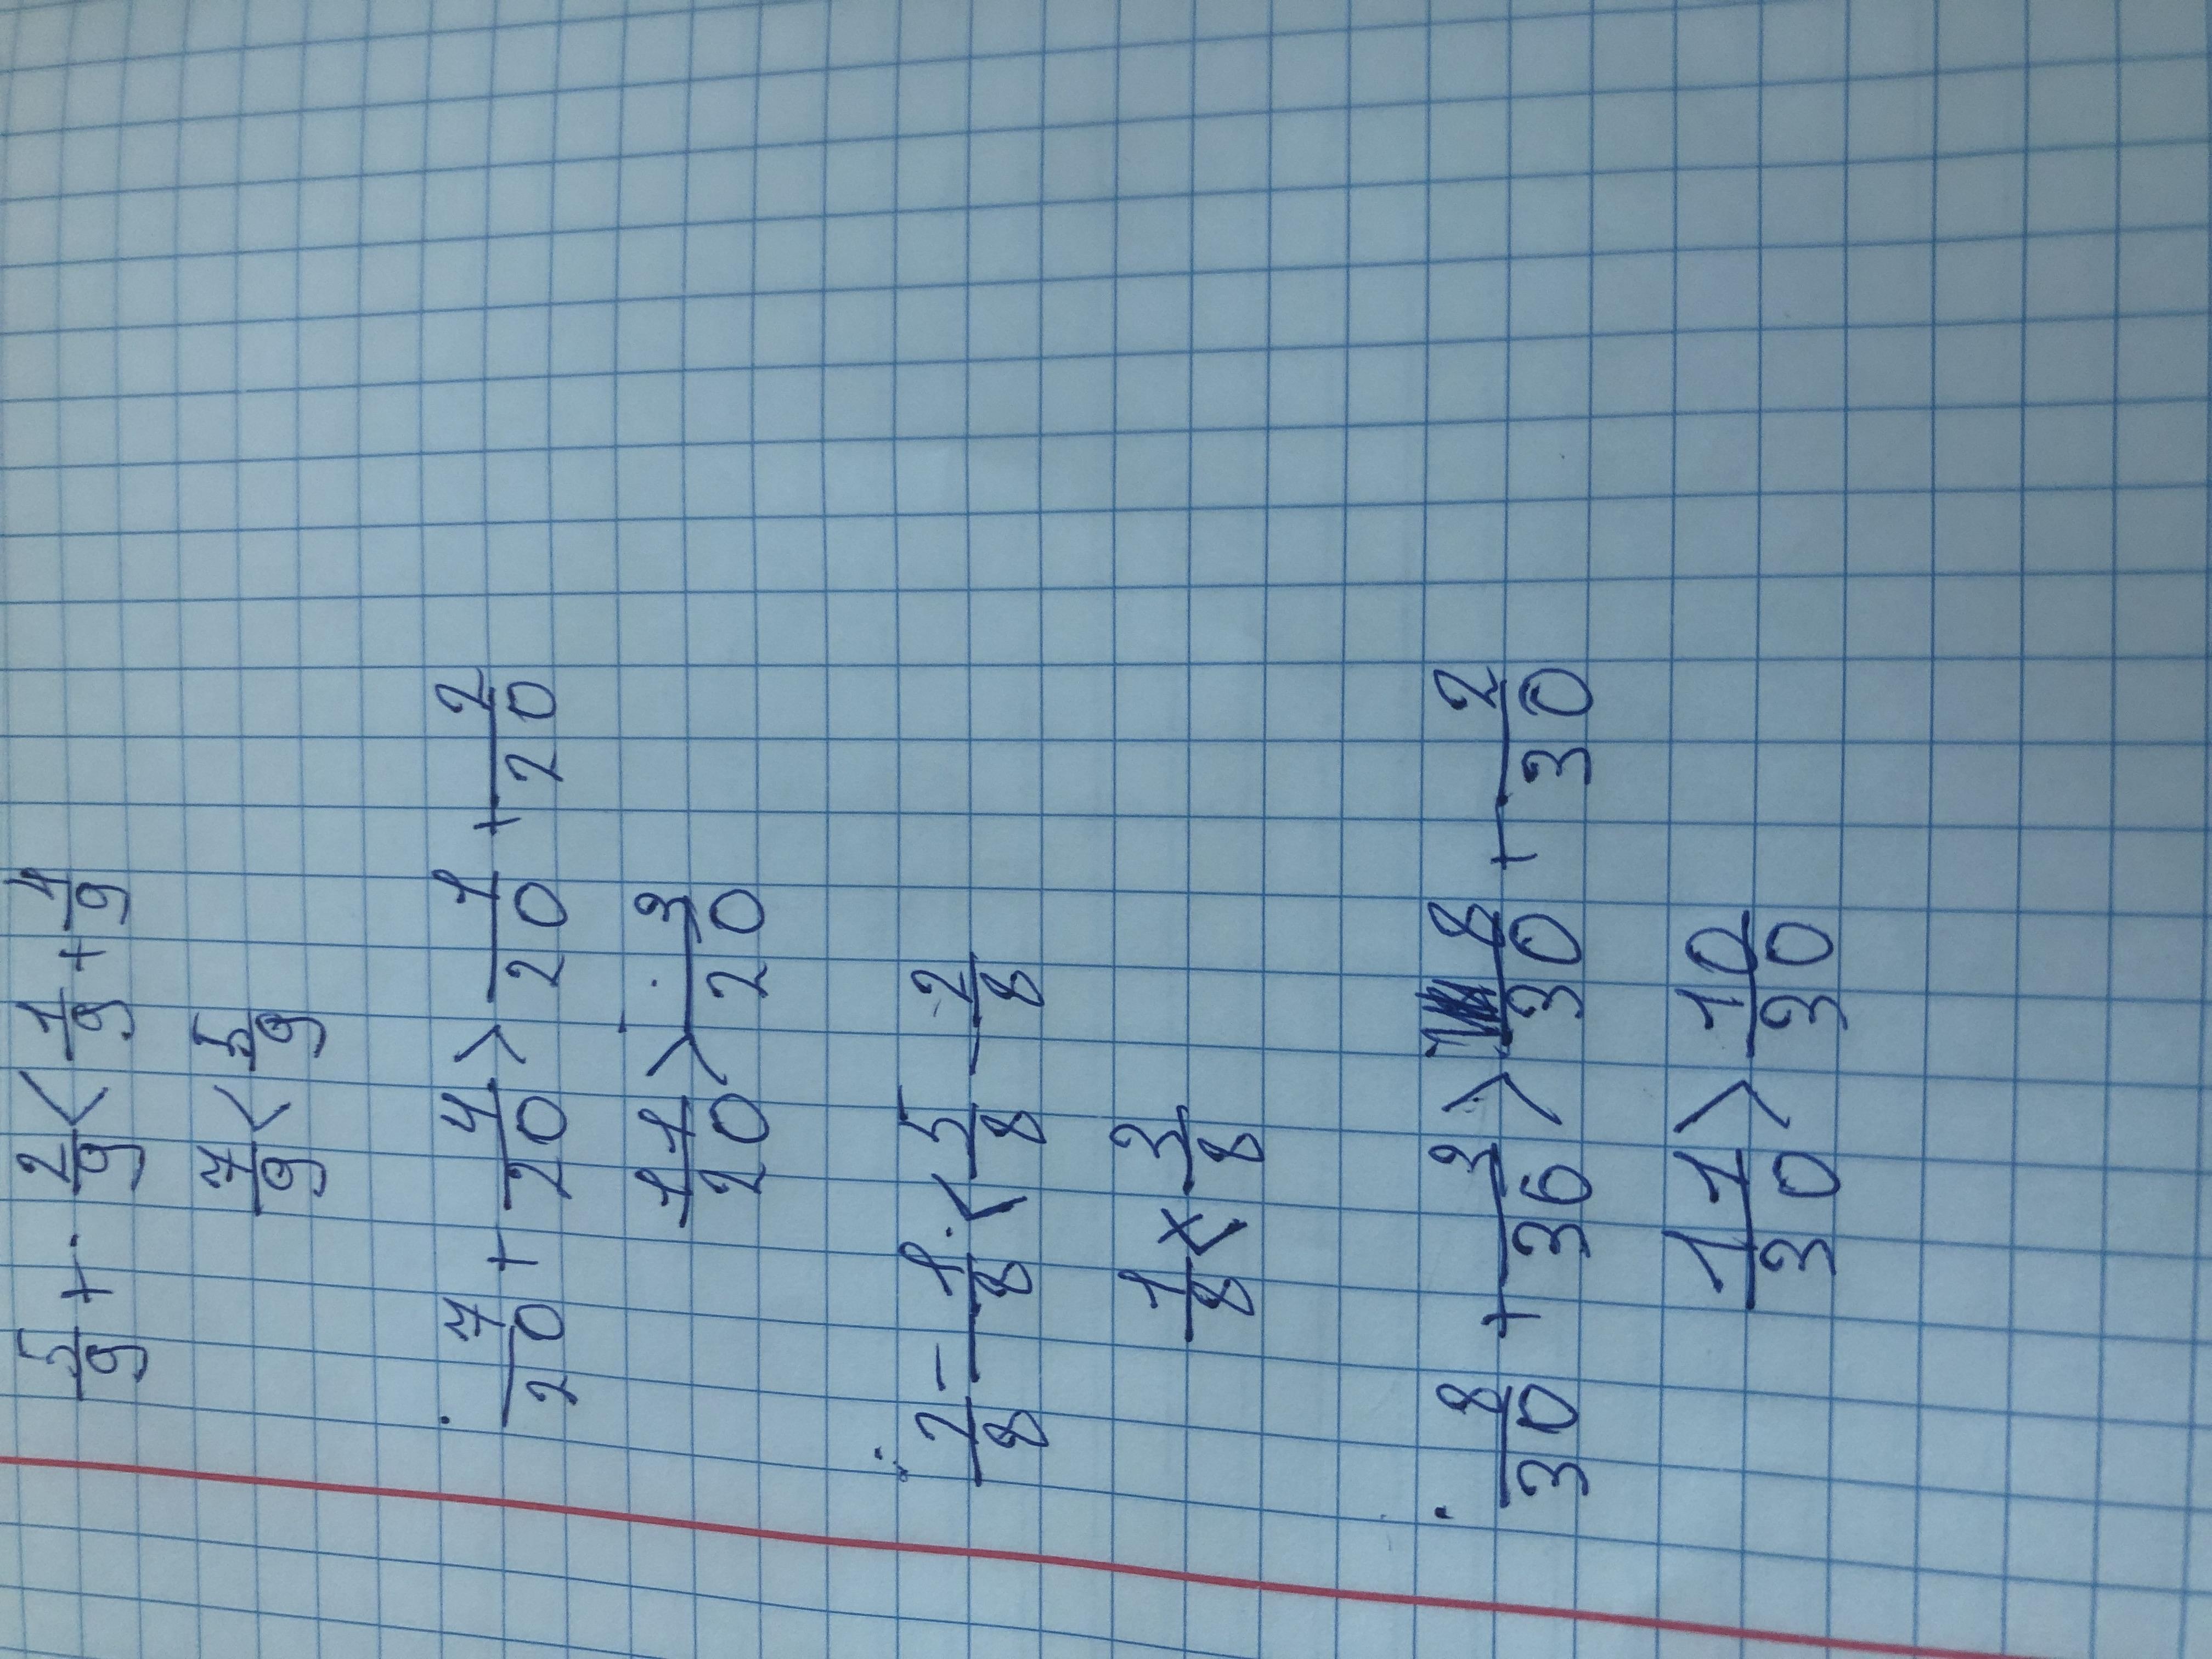 5/9 + 2/9 < 1/9 + 4/9
7/9 < 5/9
7/20 + 4/20 > 1/20 + 2/20
11/20 > 3/20
2/8 - 1/8 < 5/8 - 2/8
1/8 < 3/8
8/30 + 3/36 > 8/30 + 2/30
11/30 > 10/30